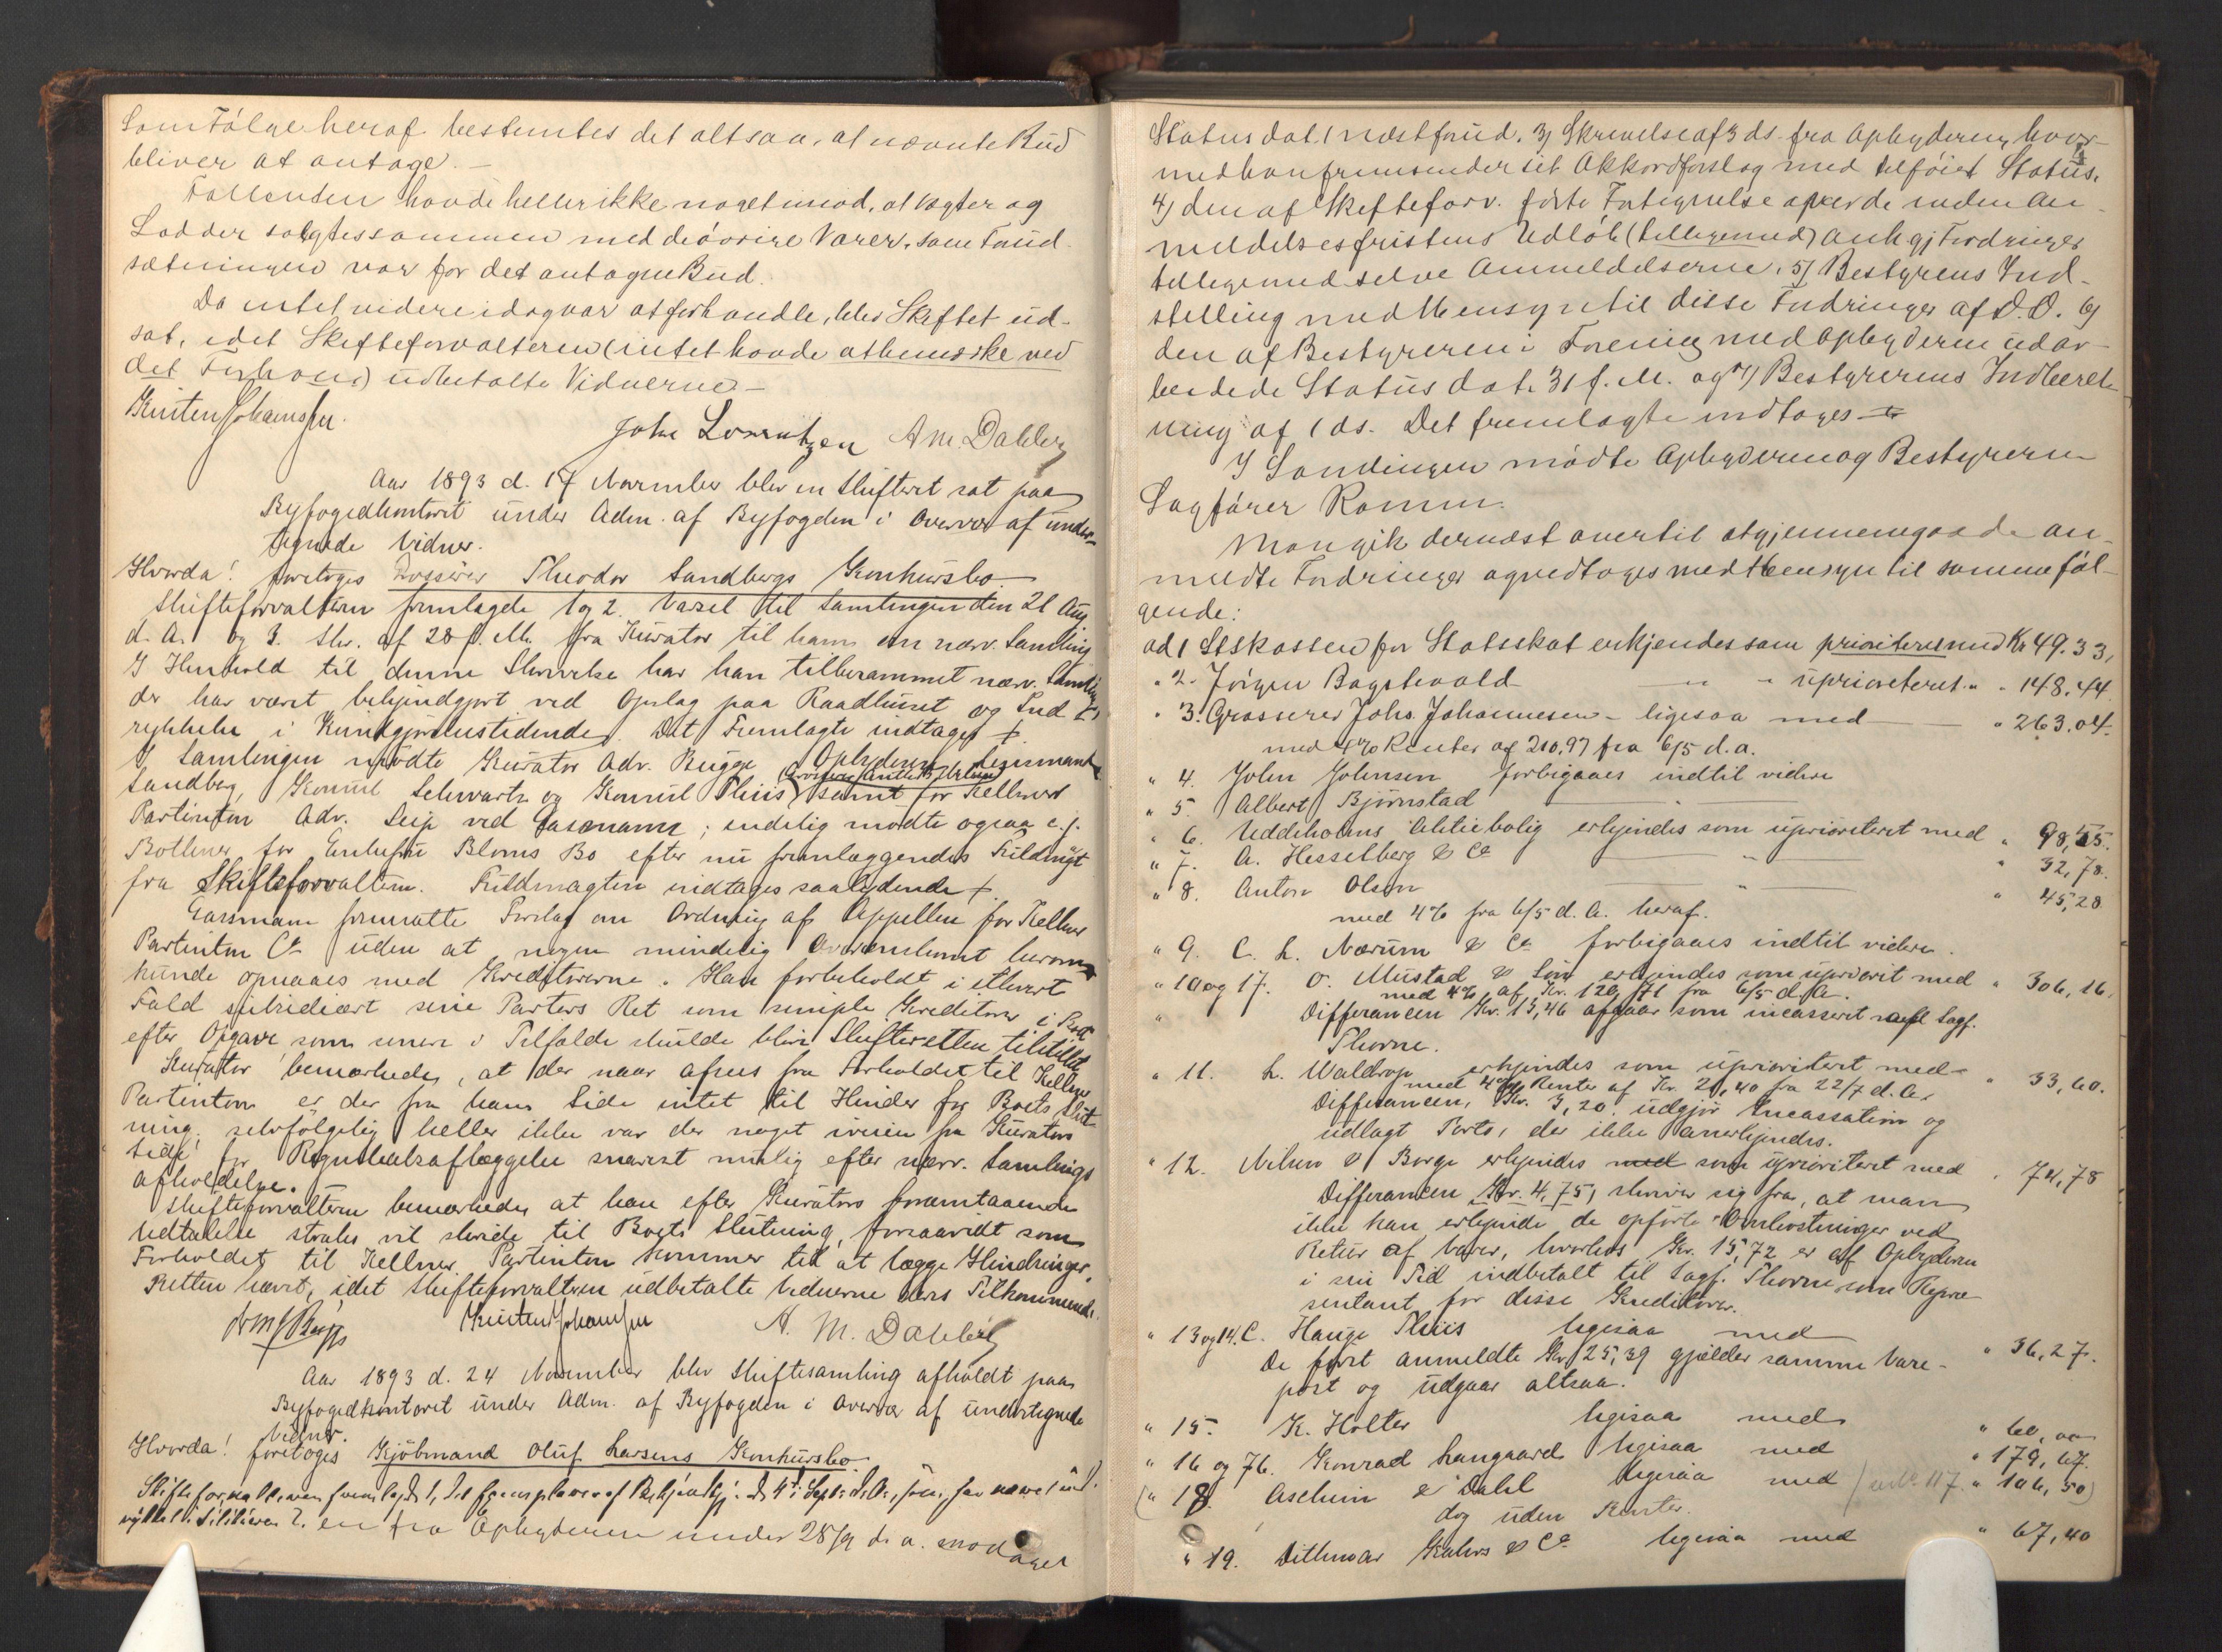 Som Følge heraf bestemtes det altsaa, at nævnte Bud
bliver at antage. –
Fallenten havde heller ikke noget imod, at Vægter og
Lodder solgtes sammen med de øvrige Varer, som Forud-
sætningen var for det antagne Bud.
Da intet videre idag var at forhandle, blev Skiftet ud-
sat, idet Skifteforvalteren (intet havde at bemærke ved
det Forhand) udbetalte Vidnerne –
Kristen Johanssen.
John Lorentzen A. M. Dahl
Aar 1893 d. 17 November blev en Skifteret sat paa
Byfogedkontoret under Adm. af Byfogden i Overvær af under-
tegnede Vidner.
Hvorda! foretoges Grosserer Theodor Sandbergs Konkursbo.
Skifteforvalteren fremlagde 1 og 2. Varsel til Samlingen den 21 Aug
d. A. og 3. Skr. af 28 f. M. fra Kurator til ham om nærv. Samling
I Henhold til denne Skrivelse har han tilberammet nærv. Samling
der har været bekjendtgjort ved Opslag paa Raadhuset og Ind-
rykkelse i Kundgjørelsestidende. Det Fremlagte indtages +.
I Samlingen mødte Kurator Adv. Bugge, Opbyderen,
Sandberg, Konsul Schwartz og Konsul Thiis samt for Kellner
Partinton Adv. Leip ved Gasmann; endelig mødte ogsaa e.f.
Bothner for Enkefru Bloms Bo efter nu fremlæggendes Fuldmagt
fra Skifteforvalteren. Fuldmagten indtages saalydende +.
Gasmann fremsatte Forslag om Ordning af Appellen for Kellner
Partinton Co uden at nogen mindelig Overenskomst herom
kunde opnaaes med Kreditorerne. Han forbeholdt i ethvert
Fald subsidiært sine Parters Ret som simple Kreditorer i Boet
efter Opgave som senere i Tilfælde skulde blive Skifteretten tilstillet
Kurator bemærkede, at der naar afsees fra Forholdet til Kellner
Partinton er der fra hans Side intet til Hinder for Boets Slut-
ning; selvfølgelig heller ikke var der noget iveien fra Kurators
Side for Regnskabsaflæggelse snarest mulig efter nærv. Samlings
afholdelse.
Skifteforvalteren bemærkede at han efter Kurators foranstaaende
Udtalelse straks vil skride til Boets Slutning, forsaavidt som
Forholdet til Kellner Partinton kommer til at lægge Hindringer.
Retten hævet, idet Skifteforvalteren udbetalte Vidnerne deres Tilkommende.
Kristen Johanssen A. M. Dahl
Aar 1893 d. 24 November blev Skiftesamling afholdt paa
Byfogedkontoret under Adm. af Byfogden i Overvær af undertegnede
Vidner.
Hvorda! foretoges Kjøbmand Oluf Larsens Konkursbo.
Skifteforvalteren fremlagde 1, Exemplarer af Bekjendtgj. d 4de Septr d. A.,
2. en fra Opbyderen under 28/9 d. a. modtaget
Status dat. 1 næstforud. 3) Skrivelse af 3 ds. fra Opbyderen, hvor-
med han fremsender sit Akkordforslag med tilføiet Status,
4) den af Skifteforv. førte Fortegnelse over de inden An-
meldelsesfristens Udløb (tillegemed) anmg. Fordringer
tilligemed selve Anmeldelserne, 5) Bestyrens Ind-
stilling med Hensyn til disse Fordringer af D. D. 6)
den af Bestyreren i Forening med Opbyderen udar-
beidede Status dat. 31 f. M. og 7) Bestyrerens Indberet-
ning af 1 ds. Det fremlagte indtages
I Samlingen mødte Opbyderen og Bestyreren
Sagfører Romm.
Man gik dernæst over til at gjennemgaa de an-
meldte Fordringer og vedtoges med Hensyn til samme føl-
gende:
ad 1 Stskassen for Statsskat erkjendes som prioriteret med Kr 49.33,
" 2. Jørgen Bagstevold " " uprioriteret " " 148.44
" 3. Grosserer Johs. Johannesen – ligesaa med " 263.04.
med 4% Renter af 210.97 fra 6/5 d. a.
" 4. John Johnsen forbigaaes indtil videre
" 5. Albert Bjørnstad "
" 6. Uddeholms Aktiebolig erkjendes som uprioriteret med " 98,55.
" 7. A. Hesselberg & Co " " 32,78.
" 8. Anton Olsen " " 45,28
med 4% fra 6/5 d. A. heraf.
" 9. C. L. Nærum & Co forbigaaes indtil videre.
" 10 og 17. O. Mustad & Søn erkjendes som upriorit med " 306,16.
med 4% af Kr. 120,71 fra 6/5 d. A.
" Differancen Kr. 13,46 afgaar som incasseret ved Sagf.
Thorne.
" 11. L. Waldrop erkjendes som uprioriteret med " 33,60.
med 4% Renter af Kr. 21,40 fra 22/7 d. A.
Differancen, Kr. 3,20 udgjør Incassation og
udlagt Porto, der ikke anerkjendes.
" 12. Nilsen & Borge erkjendes med som uprioriteret med " 74,78
Differancen Kr. 4,75, skriver sig fra, at man
ikke kan erkjende de opførte Omkostninger ved
Retur af Varer, hvorhos Kr. 15,72 er af Opbyderen
i sin Tid indbetalt til Sagf. Thorne som Repræ-
sentant for disse Kreditorer.
" 13 og 14. C. Hauge Thiis ligesaa med " 36,27.
De først anmeldte Kr 25,39 gjælder samme Vare-
post og udgaar altsaa.
" 15. K. Holter ligesaa med " 60,00
" 16 og 76. Konrad Langaard ligesaa med " 179,67.
(" 18. Aschim & Dahl ligesaa med / 117. " 106,50)
dog uden Renter.
" 19. Dithmar Kahrs & Co ligesaa med " 67,40